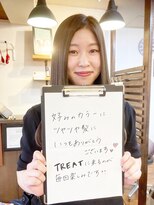 好みのカラーに
ツヤツヤ髪に
いつもありがとう
ございます
TREATに来るのが
毎回楽しみです!!